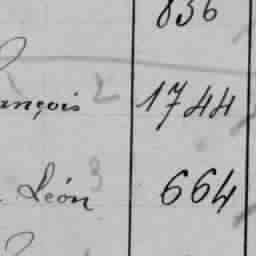 836
ançois 2 1744
León 3 664